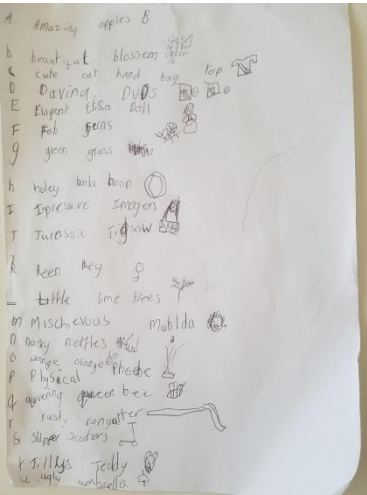 A Amazing apples
b beautiful blossem
C cute cat hand bag top
D Daving DVDs
E Elagent Elsa Doll
F Fab ferns
g green grass
h holey hoola hoop
I Inpressive Imagens
J Jurassic Jigsaw
k keen key
L Little lime trees
m Mischievous Matilda
n nasty nettles
o orange orange
P Physical Phoebe
q quvering queen bee
r rusty
S slipper scooters
t Tillys Teddy
u ugly umbrella